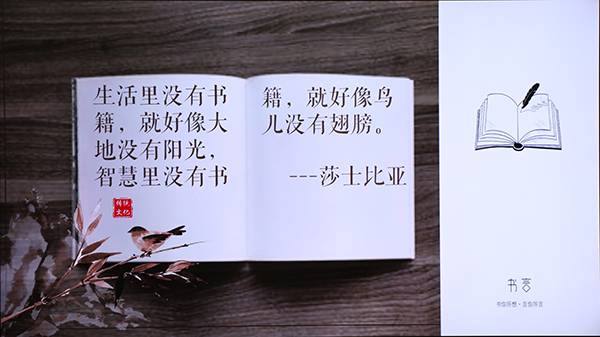 生活里没有书
籍，就好像大
地没有阳光，
智慧里没有书
籍，就好像鸟
儿没有翅膀。
---莎士比亚
传统
文化